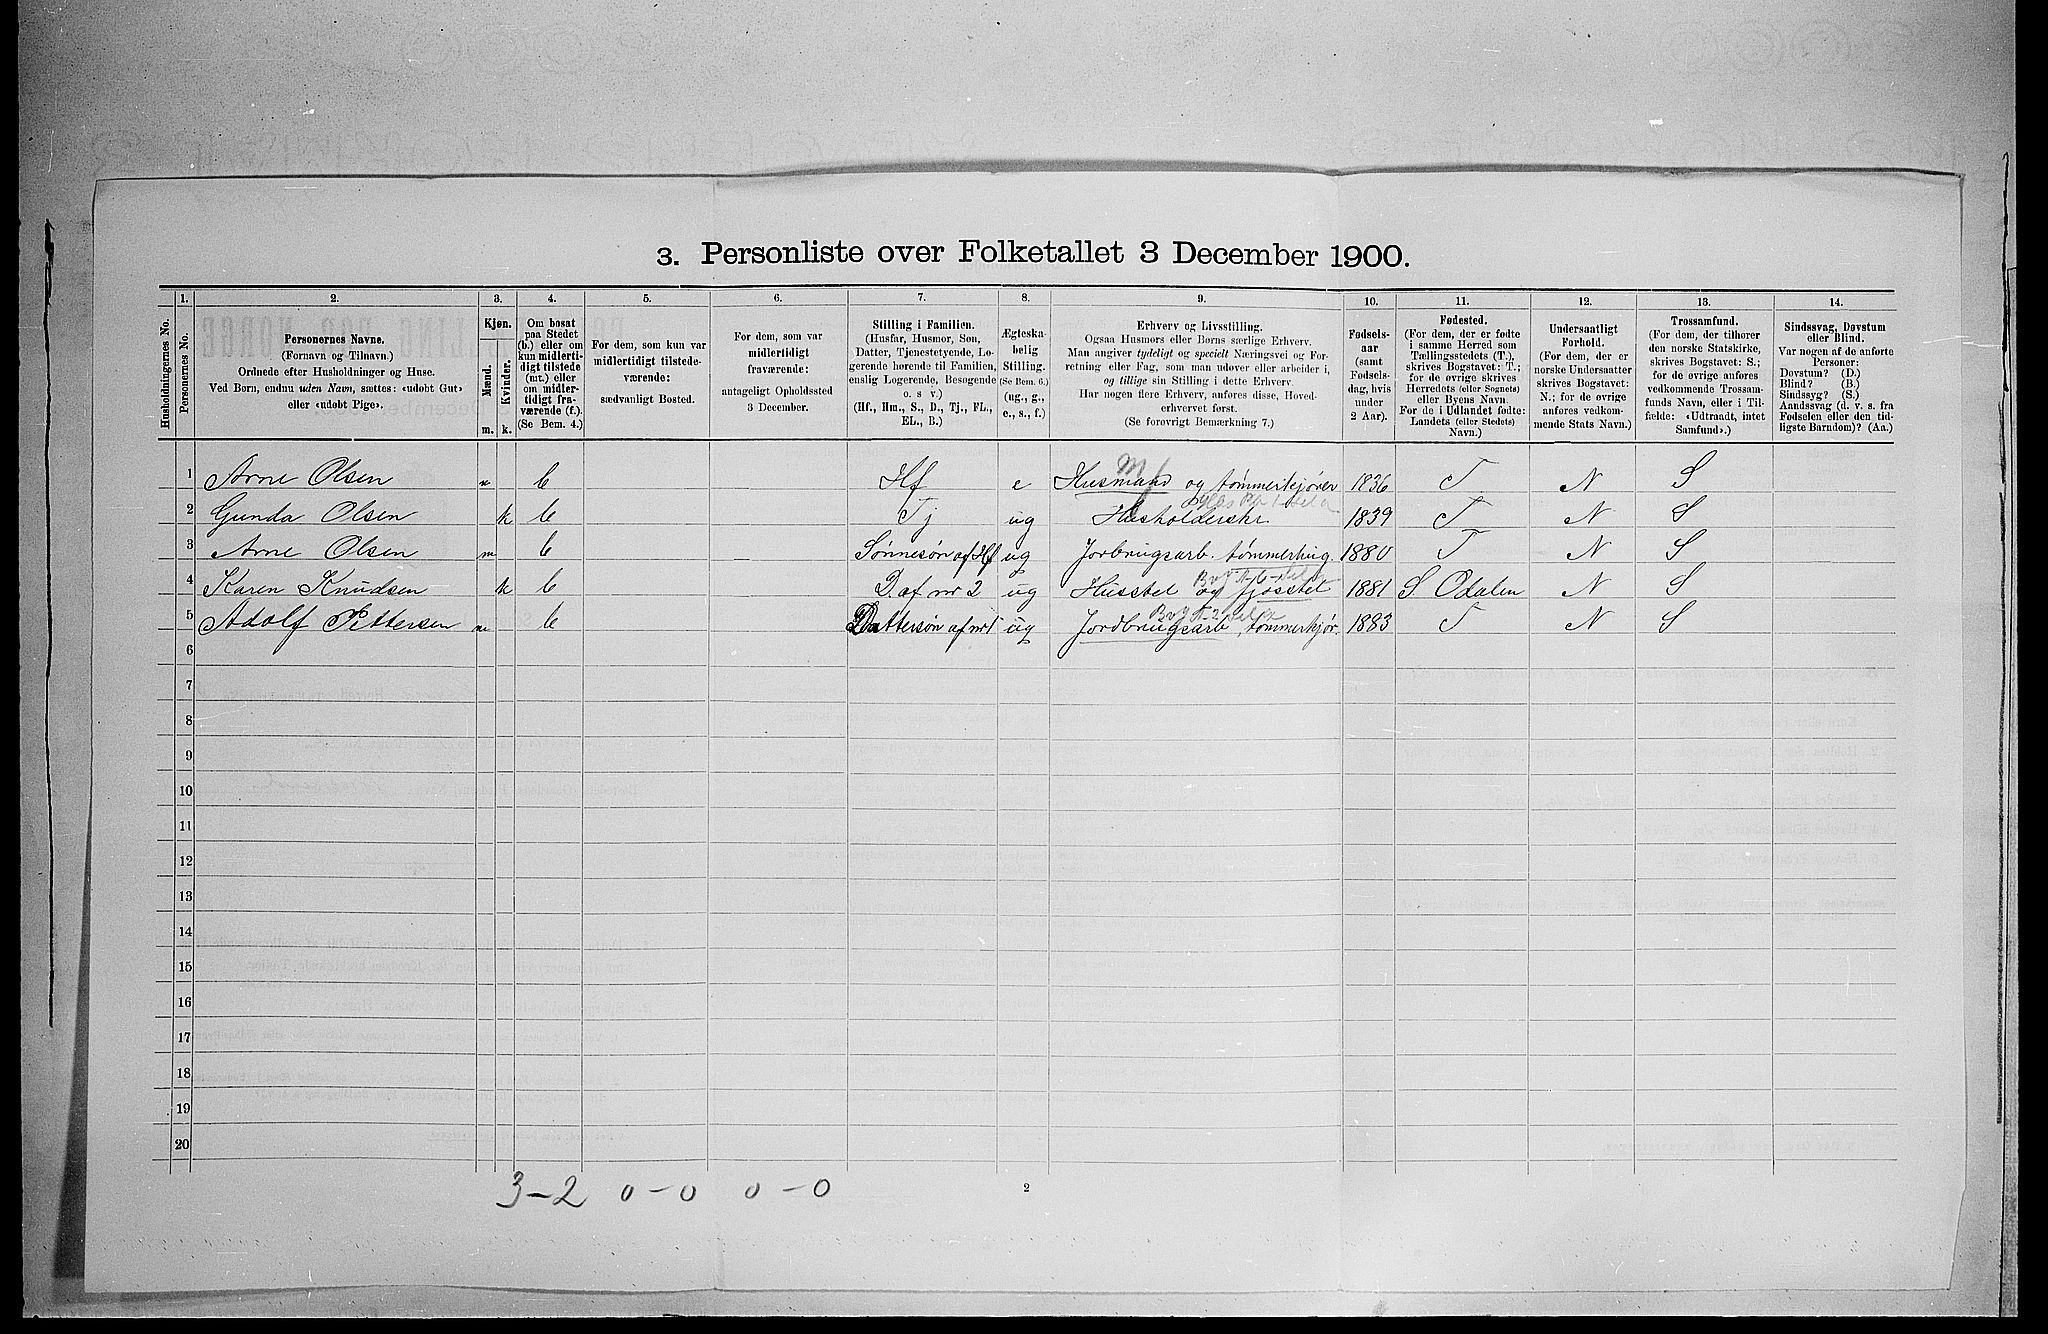 3. Personliste over Folketallet 3 December 1900.
1. 2. 3. 4. 5. 6. 7. 8. 9. 10. 11. 12. 13. 14.
Husholdningernes No.
Personernes No.
Personernes Navne.
(Fornavn og Tilnavn.)
Ordnede efter Husholdninger og Huse.
Ved Børn, endnu uden Navn, sættes: «udøbt Gut»
eller «udøbt Pige».
Kjøn.
Mænd.
Kvinder.
m. k.
Om bosat
paa Stedet
(b.) eller om
kun midlerti-
digt tilstede
(mt.) eller
om midler-
tidigt fra-
værende (f.).
(Se Bem. 4.)
For dem, som kun var
midlertidigt tilstede-
værende:
sædvanligt Bosted.
For dem, som var
midlertidigt
fraværende:
antageligt Opholdssted
3 December.
Stilling i Familien.
(Husfar, Husmor, Søn,
Datter, Tjenestetyende, Lo-
gerende hørende til Familien,
enslig Logerende, Besøgende
o. s v.)
(Hf., Hm., S., D., Tj., FL.,
EL., B.)
Ægteska-
belig
Stilling.
(Se Bem. 6.)
(ug., g.,
e., s., f.)
Erhverv og Livsstilling.
Ogsaa Husmors eller Børns særlige Erhverv.
Man angiver tydeligt og specielt Næringsvei og For-
retning eller Fag, som man udøver eller arbeider i,
og tillige sin Stilling i dette Erhverv.
Har nogen flere Erhverv, anføres disse, Hoved-
erhvervet først.
(Se forøvrigt Bemærkning 7.)
Fødsels-
aar
(samt
Fødsels-
dag, hvis
under
2 Aar).
Fødested.
(For dem, der er fødte
i samme Herred som
Tællingsstedets (T.),
skrives Bogstavet: T.;
for de øvrige skrives
Herredets (eller Sognets)
eller Byens Navn.
For de i Udlandet fødte:
Landets (eller Stedets)
Navn.)
Undersaatligt
Forhold.
(For dem, der er
norske Undersaatter
skrives Bogstavet:
N.; for de øvrige
anføres vedkom-
mende Stats Navn.)
Trossamfund.
(For dem, der tilhører
den norske Statskirke,
skrives Bogstavet: S.;
for de øvrige anføres
vedkommende Trossam-
funds Navn, eller i Til-
fælde: «Udtraadt, intet
Samfund».)
Sindssvag, Døvstum
eller Blind.
Var nogen af de anførte
Personer:
Døvstum? (D.)
Blind? (B.)
Sindssyg? (S.)
Aandssvag (d. v. s. fra
Fødselen eller den tid-
ligste Barndom)? (Aa.)
1 Arne Olsen m b Hf e Husmand og tømmerkjører 1836 T N S
2 Gunda Olsen k b Tj ug Husholderske 1839 T N S
3 Arne Olsen m b Sønnesøn af Hf ug Jorbrugsarb. tømmerhug. 1880 T N S
4 Karen Knudsen k b D. af nr 2 ug Husstel og fjøsstel 1881 S Odalen N S
5 Adolf Pettersen m b Dattersøn af nr 1 ug Jordbrugsarb, tømmerkjør. 1883 T N S
6
7
8
9
10
11
12
13
14
15
16
17
18
19
20
3-2 0-0 0-0 2